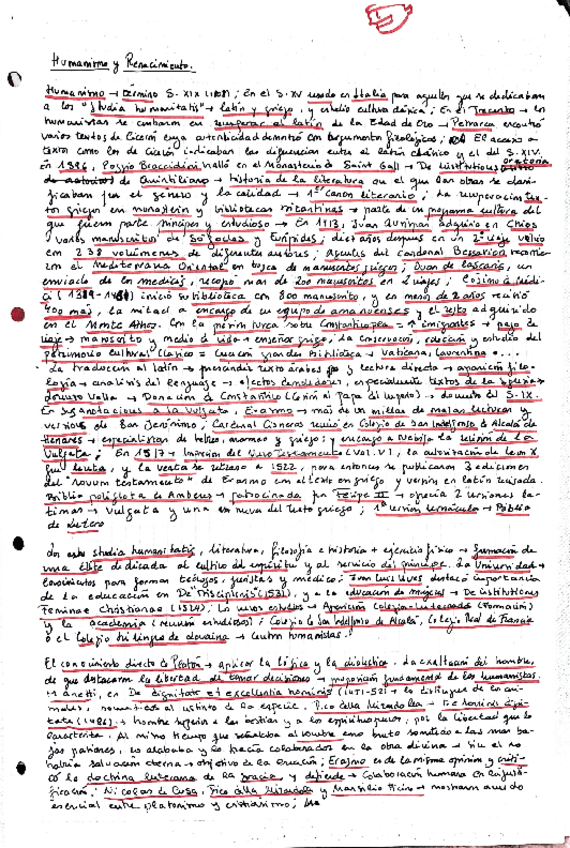 Humanismo y Renacimiento.
Humanismo → término S. XIX (1808); En el S. XV usado en Italia para aquellos que se dedicaban
a los "studia humanitatis" → latín y griego, y estudio cultura clásica; En el Trecento → los
humanistas se centraban en recuperar el latín de la Edad de Oro → Petrarca encontró
varios textos de Cicerón cuya autenticidad demostró con argumentos filológicos; El acceso a
textos como los de Cicerón indicaban las diferencias entre el latín clásico y el del S. XIV.
En 1386, Poggio Bracciolini halló en el Monasterio de Saint Gall → De institutione oratoria
de Quintiliano → historia de la literatura en el que las obras se clasi-
ficaban por el género y la calidad → 1er canon literario; La recuperación tex-
tos griegos en monasterios y bibliotecas bizantinas → parte de un programa cultural del
que fueron parte príncipes y estudiosos → En 1413, Juan Aurispa adquirió en Chíos
varios manuscritos de Sófocles y Eurípides, diez años después en un 2º viaje volvió
con 238 volúmenes de diferentes autores; Agentes del cardenal Bessarion
en el Mediterráneo Oriental en busca de manuscritos griegos; Juan de Lascaris, un
enviado de los medicis, recopiló más de 200 manuscritos en 2 viajes; Cosimo de Médi-
ci (1389-1464) inició su biblioteca con 800 manuscritos, y en menos de 2 años reunió
400 más, la mitad a encargo de un equipo de amanuenses y el resto adquirido
en el Monte Athos. Con la presión turca sobre Constantinopla = ↑ emigrantes → pago de
viaje → manuscrito y medio de vida → enseñar griego. La conservación, y estudio del
patrimonio cultural clásico = creación grandes bibliotecas → Vaticana, Laurentina ....
La traducción al latín → prescindir textos árabes y lectura directa → aparición filo-
logía → análisis del lenguaje → efectos demoledores, especialmente textos de la iglesia →
Lorenzo Valla → Donación de Constantino (Cesión al Papa del Imperio) → documento del S. IX.
En sus anotaciones a la Vulgata, Erasmo → más de un millar de malas lecturas y
versiones de San Jerónimo; Cardenal Cisneros reunió en Colegio de San Ildefonso de Alcalá de
Henares → especialistas de hebreo, arameo y griego; y encargó a Nebrija la revisión de la
Vulgata; En 1517 → Impresión del Nuevo Testamento (Vol. VI), la autorización de León X
fue lenta, y la venta se retrasó a 1522, para entonces se publicaron 3 ediciones
del "Novum testamentum" de Erasmo con el texto en griego y versión en latín revisada.
Biblia políglota de Amberes → patrocinada por Felipe II → ofrecía 2 versiones la-
tinas → Vulgata y una nueva del texto griego; 1ª versión vernácula → Biblia
de Lutero
Los studia humanitatis, literatura, filosofía e historia + ejercicio físico → formación de
una élite dedicada al cultivo del espíritu y al servicio del príncipe. La Universidad →
conocimientos para formar teólogos, juristas y médicos; Juan Luis Vives destacó importancia
de la educación en De Disciplinis (1531), y a la educación de mujeres → De institutione
Feminae Christianae (1524). Los nuevos estudios → Aparición Colegios-Internados (Formación)
y la academia (reunión estudiosos); Colegio de San Ildefonso de Alcalá, Colegio Real de Francia
o el Colegio trilingüe de Lovaina → centros humanistas.
El conocimiento directo de Platón → aplicar la lógica y la dialéctica. La exaltación del hombre,
de que destacaron la libertad de tomar decisiones → proposición fundamental de los humanistas.
Manetti, en De dignitate et excellentia hominis (1451-52) → lo distingue de los ani-
males, sometidos al instinto de la especie. Pico della Mirandola → De hominis digni-
tate (1486) → hombre superior a las bestias y a los espíritus puros, por la libertad que lo
caracteriza. Al mismo tiempo que señalaba al hombre como bruto sometido a las más ba-
jas pasiones, lo alababa y lo hacía colaborador en la obra divina → sin el no
habría salvación eterna → objetivo de la creación; Erasmo es de la misma opinión y criti-
có la doctrina luterana de la gracia y defiende → colaboración humana en su justi-
ficación; Nicolás de Cusa, Pico della Mirandola y Marsilio Ficino → mostraron acuerdo
esencial entre platonismo y cristianismo;